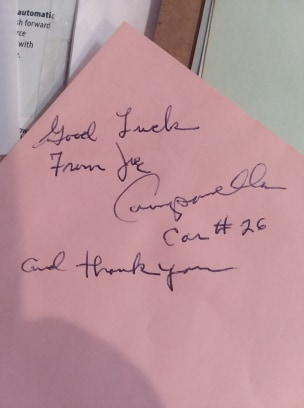 automatic
sh forward
rce
with
Good Luck
From Joe
Campanella
Car # 26
and thank you